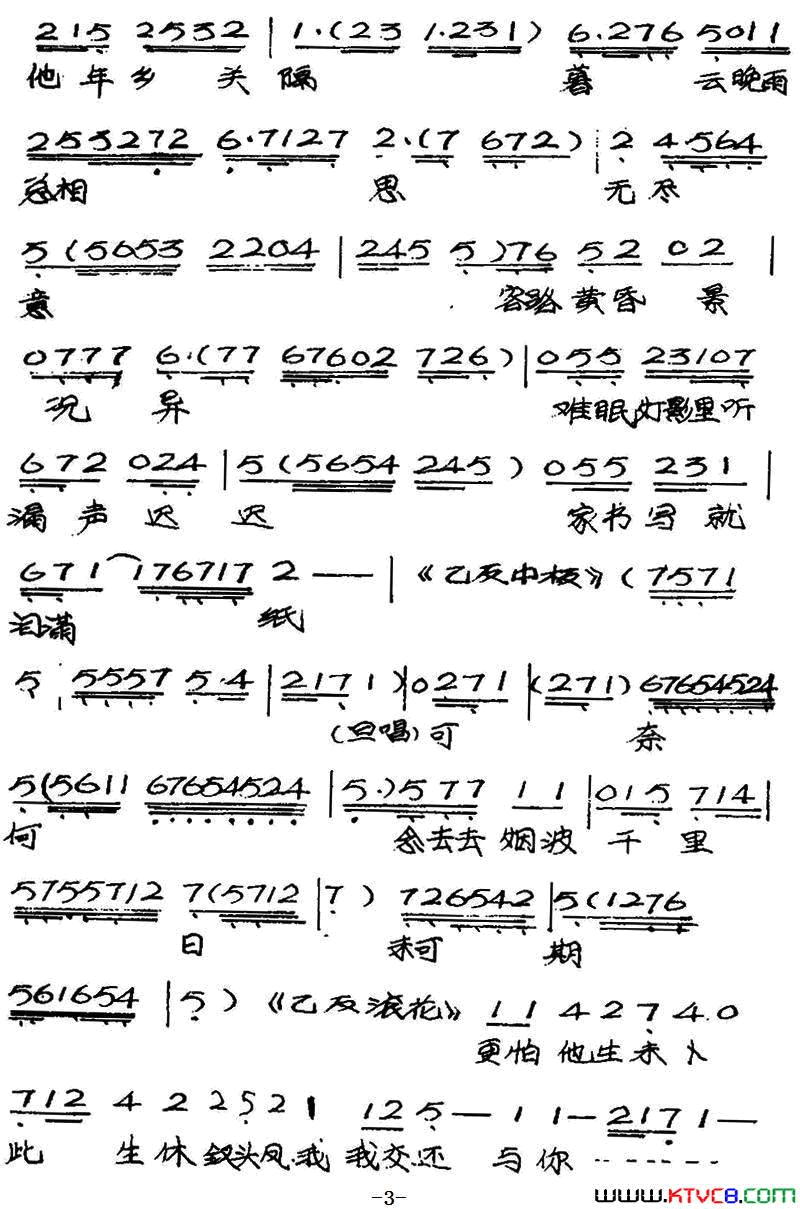 215 2532 | 1·(23 1·231) 6·276 5011
他年乡关隔 暮云晚雨
253272 6·7127 2·(7 672) | 2 4·564
总相思 无尽
5(5653 2204 | 245 5)76 52 02 |
意 客路黄昏景
0777 6·(77 67602 726) | 055 23107
况异 难眠灯影里听
672 024 | 5(5654 245) 055 231 |
漏声迟迟 家书写就
671 176717 2 — — | 《乙反中板》(7571
泪满纸
5 5557 5·4 | 2171) | 0271 | (271) 67654524
(旦唱)可 奈
5(5611 67654524 | 5·)577 11 | 015 714 |
何 念去去烟波千里
5755712 7(5712 | 7) 726542 | 5(1276
日 未可期
561654 | 5) 《乙反滚花》 11 4 2 7 4·0
更怕他生未卜
712 4 2 2 5 2 1 12 5— 1 1— 2171—
此生休钗头凤·我我交还与你--------
-3-
www.KTVC8.com